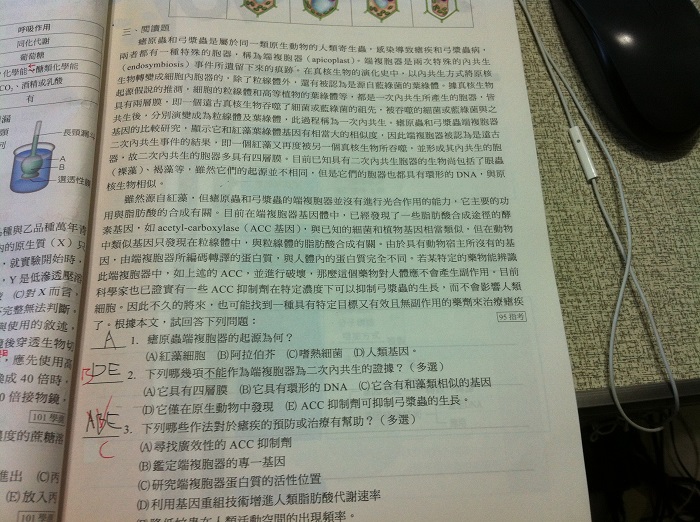 呼吸作用
同化代謝
葡萄糖
化學能→醣類化學能
CO₂，酒精或乳酸
有
長頸漏
A
B
選透性
三、閱讀題
瘧原蟲和弓漿蟲是屬於同一類原生動物的人類寄生蟲，感染導致瘧疾和弓漿蟲病，
兩者都有一種特殊的胞器，稱為端複胞器（apicoplast）。端複胞器是兩次特殊的內共生
（endosymbiosis）事件所遺留下來的痕跡，在真核生物的演化史中，以內共生方式將原核
生物轉變成細胞內胞器的，除了粒線體外，還有被認為是源自藍綠菌的葉綠體。據真核生物
起源假說的推測，細胞的粒線體和高等植物的葉綠體等，都是一次內共生所產生的胞器，皆
具有兩層膜，即一個遠古真核生物吞噬了細菌或藍綠菌的祖先，被吞噬的細菌或藍綠菌與之
共生後，分別演變成為粒線體及葉綠體，此過程稱為一次內共生。瘧原蟲和弓漿蟲端複胞器
基因的比較研究，顯示它和紅藻葉綠體基因有相當大的相似度，因此端複胞器被認為是遠古
二次內共生事件的結果，即一個紅藻又再度被另一個真核生物所吞噬，並形成其內共生的胞
器，故二次內共生的胞器多具有四層膜。目前已知具有二次內共生胞器的生物尚包括了眼蟲
（裸藻）、褐藻等，雖然它們的起源並不相同，但是它們的胞器也都具有環形的 DNA，與原
核生物相似。
雖然源自紅藻，但瘧原蟲和弓漿蟲的端複胞器並沒有進行光合作用的能力，它主要的功
用與脂肪酸的合成有關。目前在端複胞器基因體中，已經發現了一些脂肪酸合成途徑的酵
素基因，如 acetyl-carboxylase（ACC 基因），與已知的細菌和植物基因相當類似，但在動物
中類似基因只發現在粒線體中，與粒線體的脂肪酸合成有關。由於具有動物宿主所沒有的基
因，由端複胞器所編碼轉譯的蛋白質，與人體內的蛋白質完全不同。若某特定的藥物能辨識
此端複胞器中，如上述的 ACC，並進行破壞，那麼這個藥物對人體應不會產生副作用。目前
科學家也已證實有一些 ACC 抑制劑在特定濃度下可以抑制弓漿蟲的生長，而不會影響人類
細胞。因此不久的將來，也可能找到一種具有特定目標又有效且無副作用的藥劑來治療瘧疾
了。根據本文，試回答下列問題：
95 指考
A 1. 瘧原蟲端複胞器的起源為何？
(A)紅藻細胞 (B)阿拉伯芥 (C)嗜熱細菌 (D)人類基因。
BDE 2. 下列哪幾項不能作為端複胞器為二次內共生的證據？（多選）
(A)它具有四層膜 (B)它具有環形的 DNA (C)它含有和藻類相似的基因
(D)它僅在原生動物中發現 (E) ACC 抑制劑可抑制弓漿蟲的生長。
ABE 3. 下列哪些作法對於瘧疾的預防或治療有幫助？（多選）
C
(A)尋找廣效性的 ACC 抑制劑
(B)鑑定端複胞器的專一基因
(C)研究端複胞器蛋白質的活性位置
(D)利用基因重組技術增進人類脂肪酸代謝速率
種與乙品種萬年青
內的原生質（X）
，就實驗開始時，
，Y 是低滲透壓
(C)對 X 而言，
完整無法判斷。
與使用的敘述，
後穿透生物切
，應先使用高
成 40 倍時，
0 倍接物鏡。
101 學
濃度的蔗糖溶
進出 (C)丙
(E)放入丙
101 學